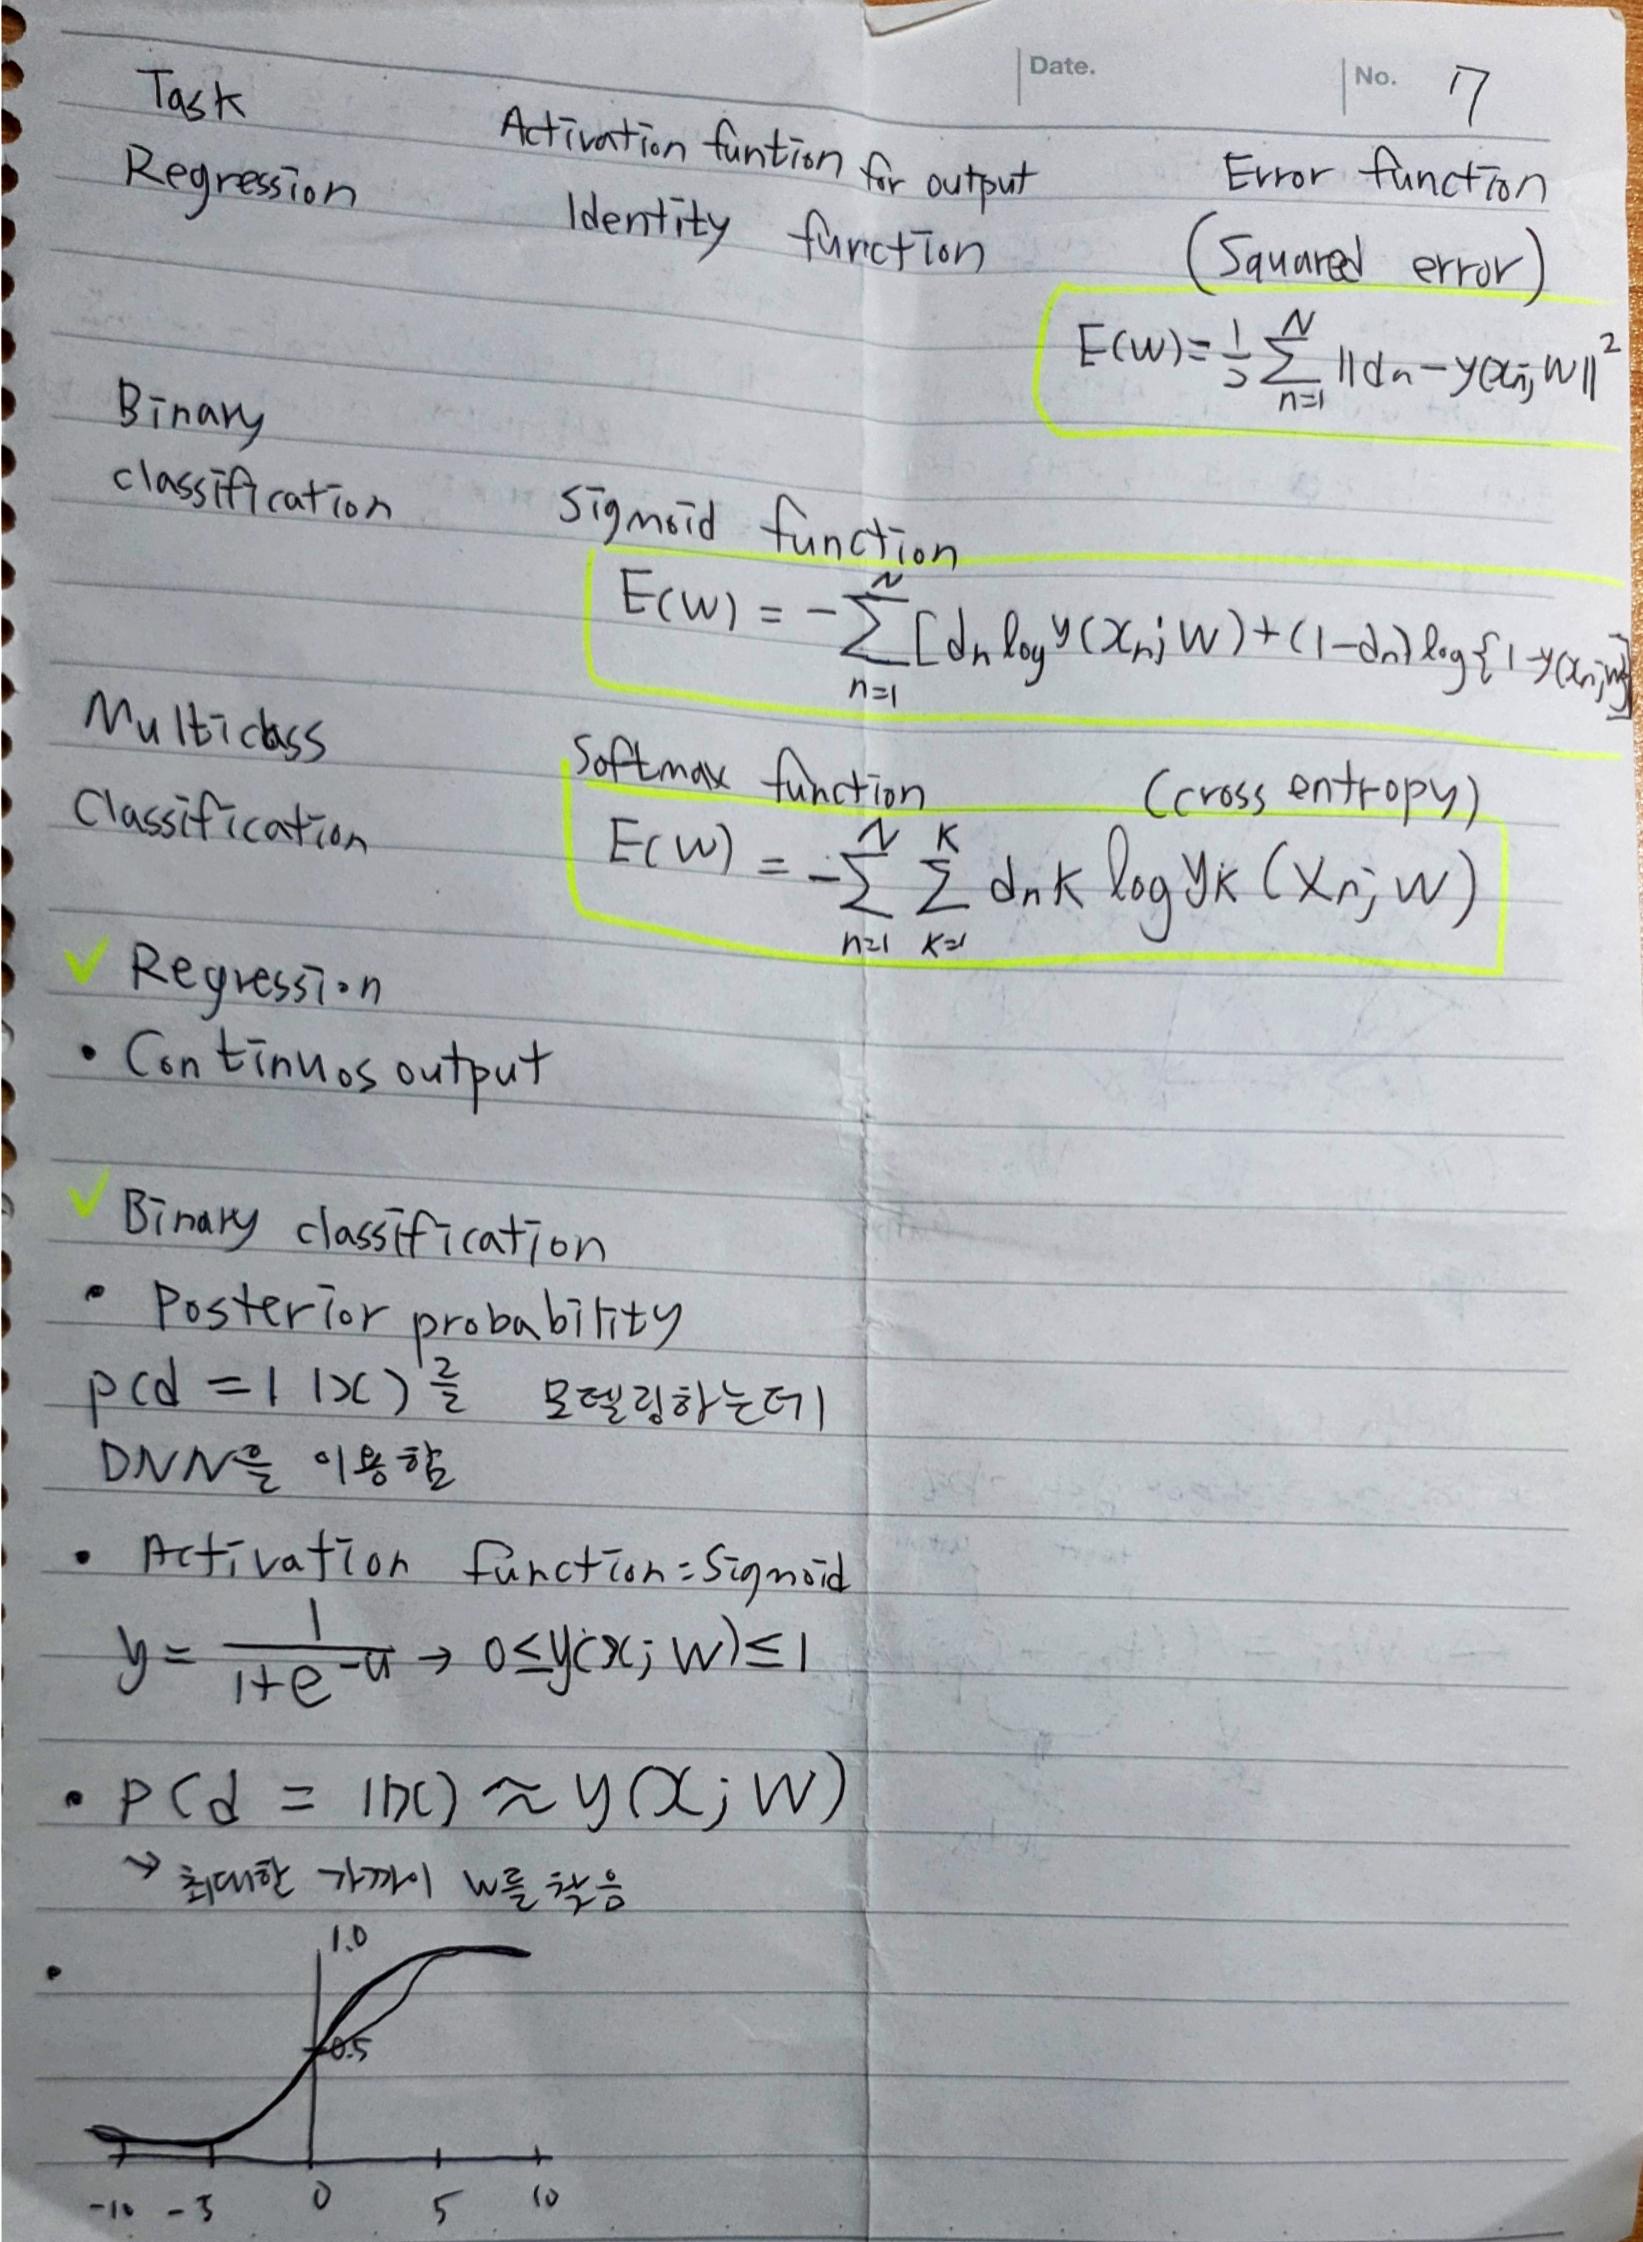 Date. No. 7
Task Activation funtion for output Error function
Regression Identity function (Squared error)
E(W)=½∑_{n=1}^{N} ||dn-y(xn;W||²
Binary
classification Sigmoid function
E(W) = -∑_{n=1}^{N} [dn log y(xn; W)+(1-dn) log{1-y(xn;w}]
Multiclass
Classification Softmax function (cross entropy)
E(W) = -∑_{n=1}^{N} ∑_{K=1}^{K} dnk log yk (xn; w)
✓ Regression
• Continuos output
✓ Binary classification
• Posterior probability
p(d =1 | x)를 모델링하는데
DNN을 이용함
• Activation function=Sigmoid
y = 1/(1+e^{-u}) → 0≤y(x; W)≤1
• p(d = 1|x) ≈ y(x; W)
→ 최대한 가까이 w를 찾음
•
1.0
0.5
-10 -5 0 5 10